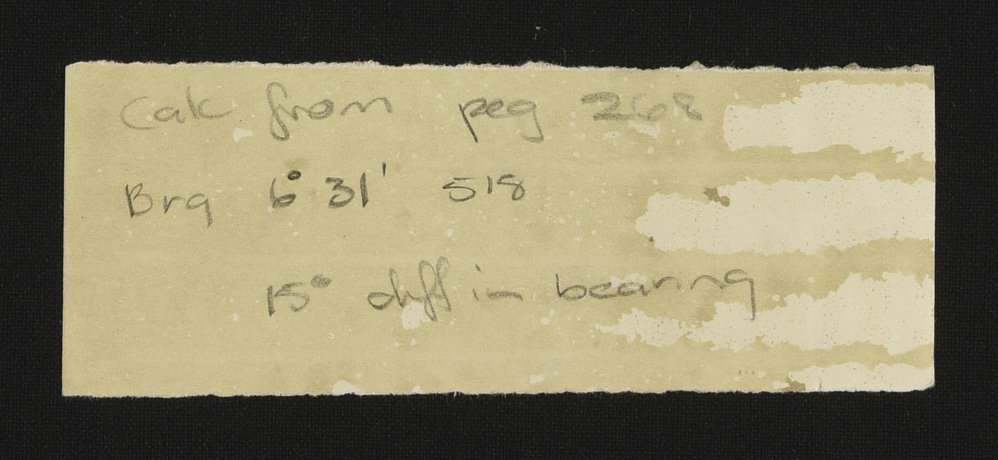 Calc from peg 268
Brg 6° 31' 518
15° diff in bearing